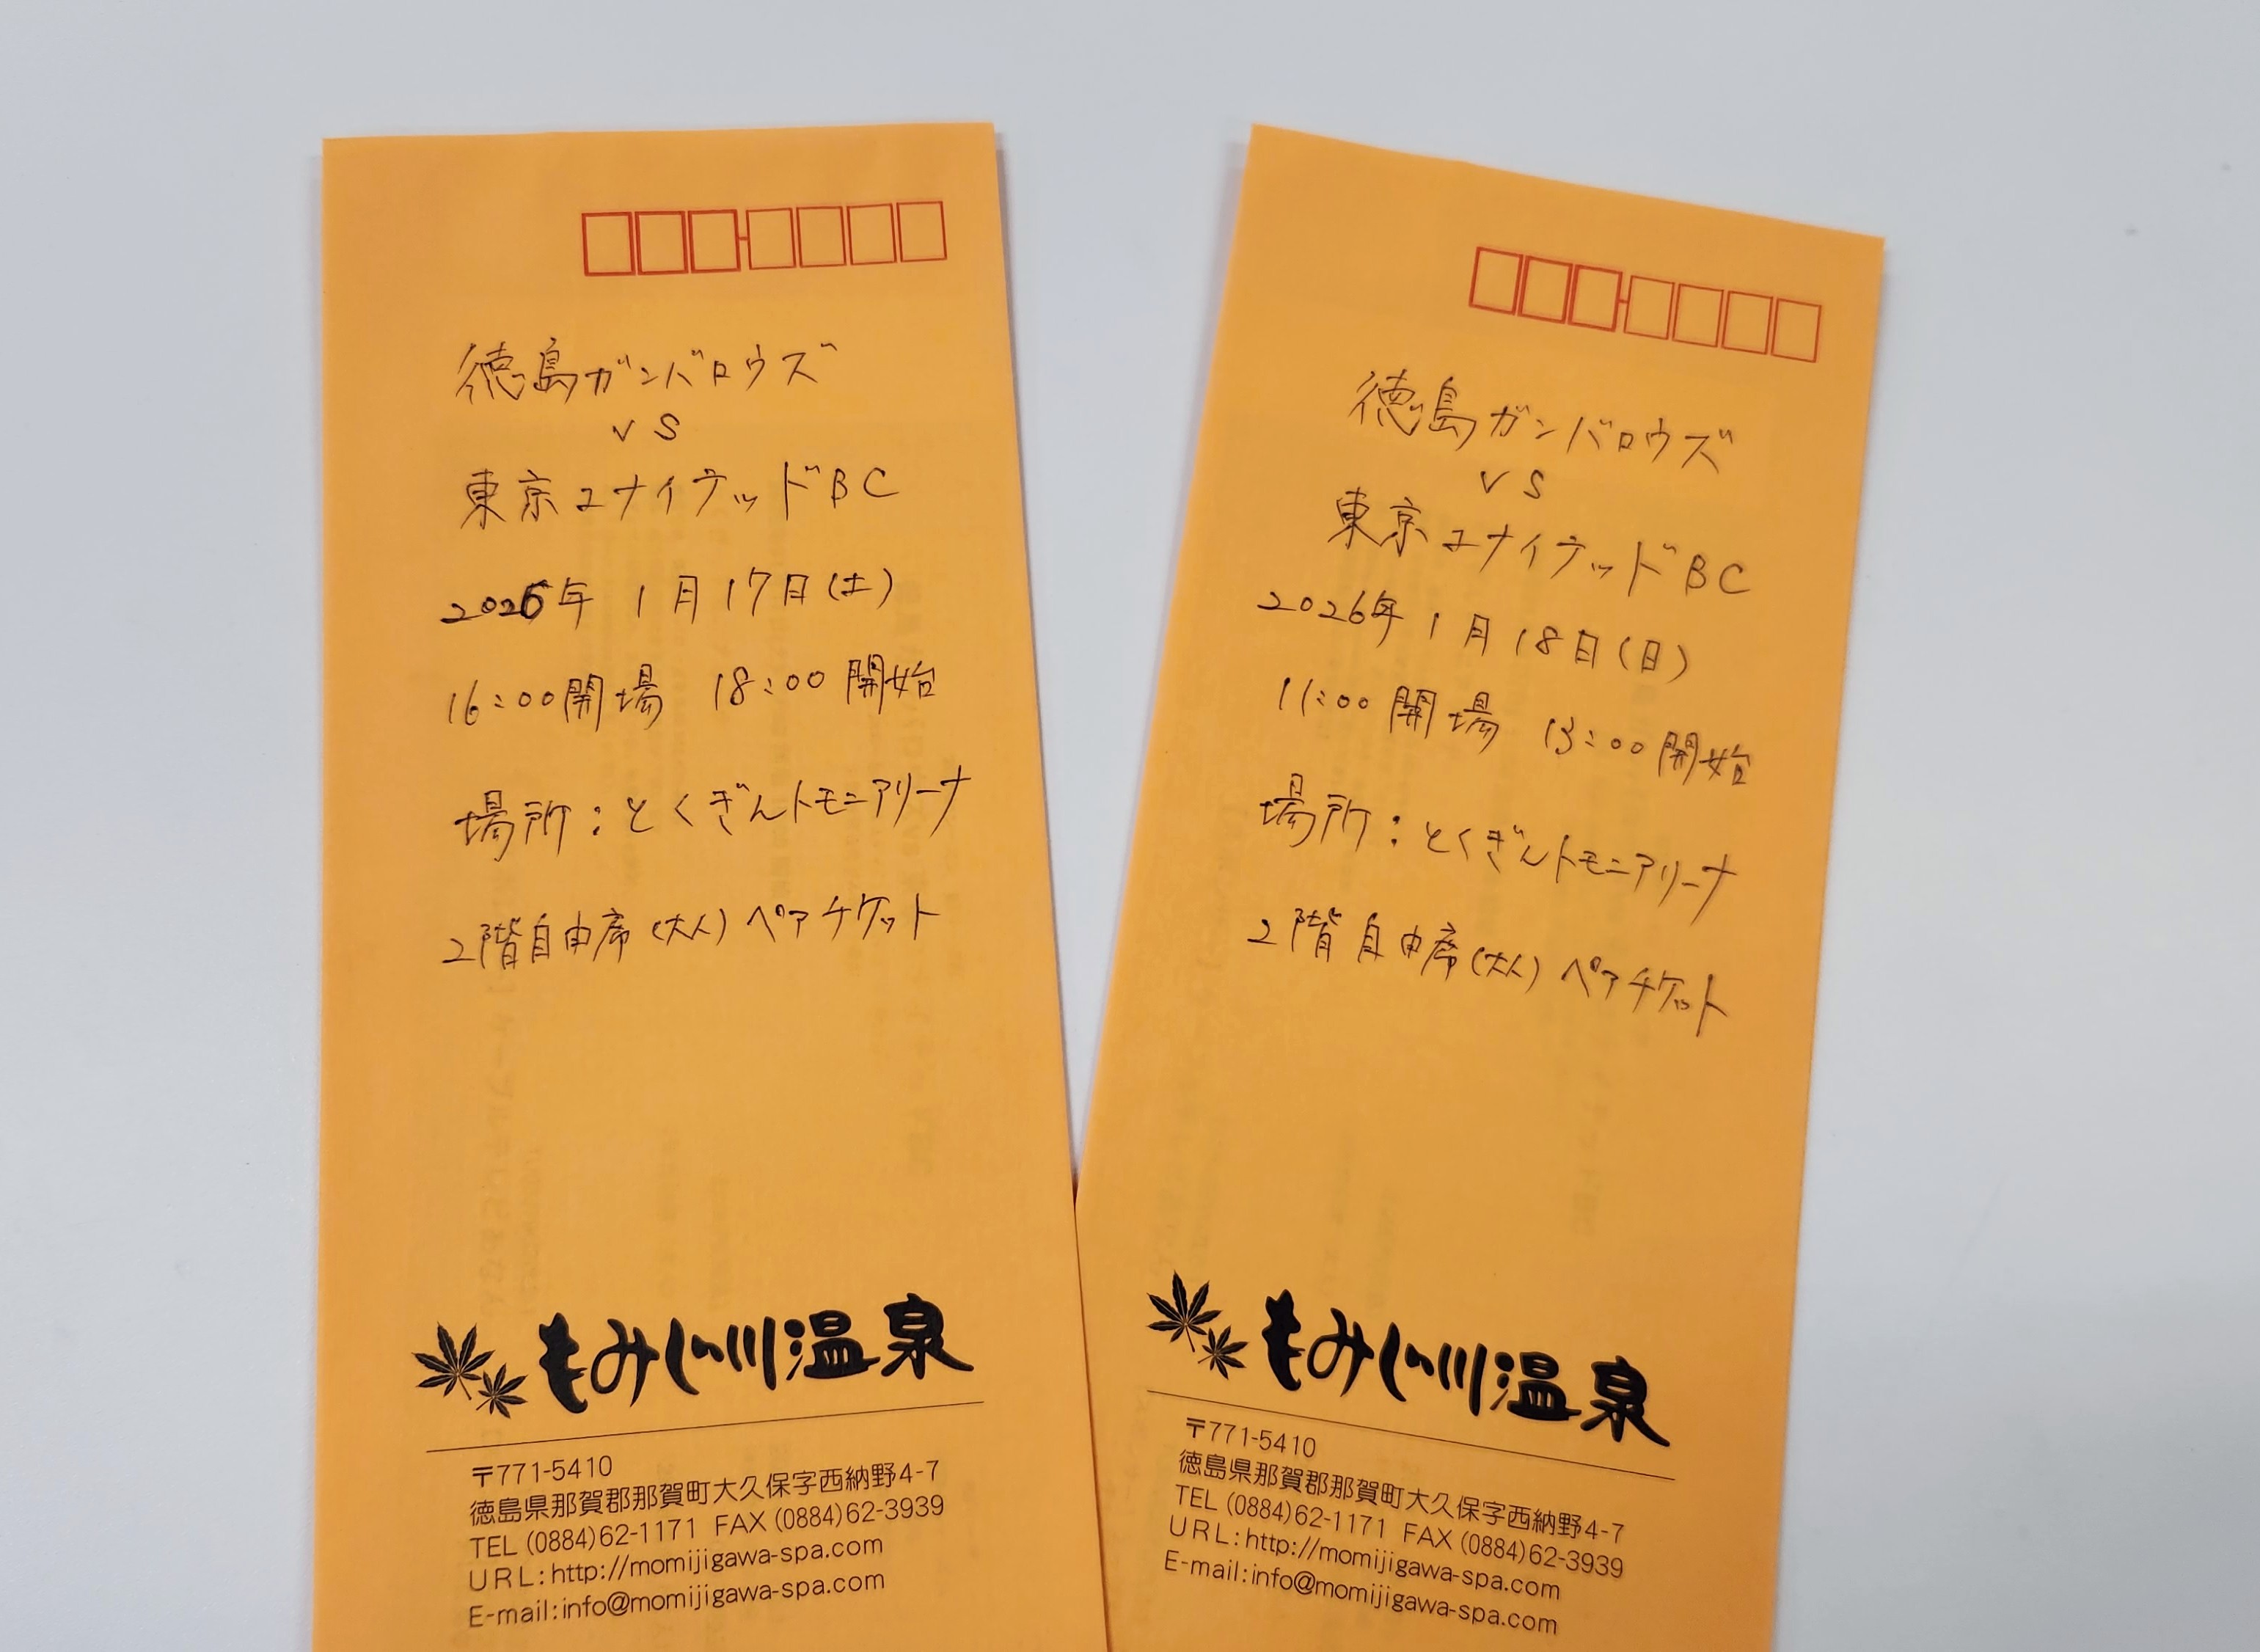 徳島ガンバロウズ
vs
東京ユナイテッドBC
2026年 1月17日(土)
16:00開場 18:00開始
場所:とくぎんトモニアリーナ
2階自由席(大人)ペアチケット
もみじ川温泉
〒771-5410
徳島県那賀郡那賀町大久保字西納野4-7
TEL (0884)62-1171 FAX (0884)62-3939
URL:http://momijigawa-spa.com
E-mail:info@momijigawa-spa.com
徳島ガンバロウズ
vs
東京ユナイテッドBC
2026年 1月18日(日)
11:00開場 13:00開始
場所:とくぎんトモニアリーナ
2階自由席(大人)ペアチケット
もみじ川温泉
〒771-5410
徳島県那賀郡那賀町大久保字西納野4-7
TEL (0884)62-1171 FAX (0884)62-3939
URL:http://momijigawa-spa.com
E-mail:info@momijigawa-spa.com